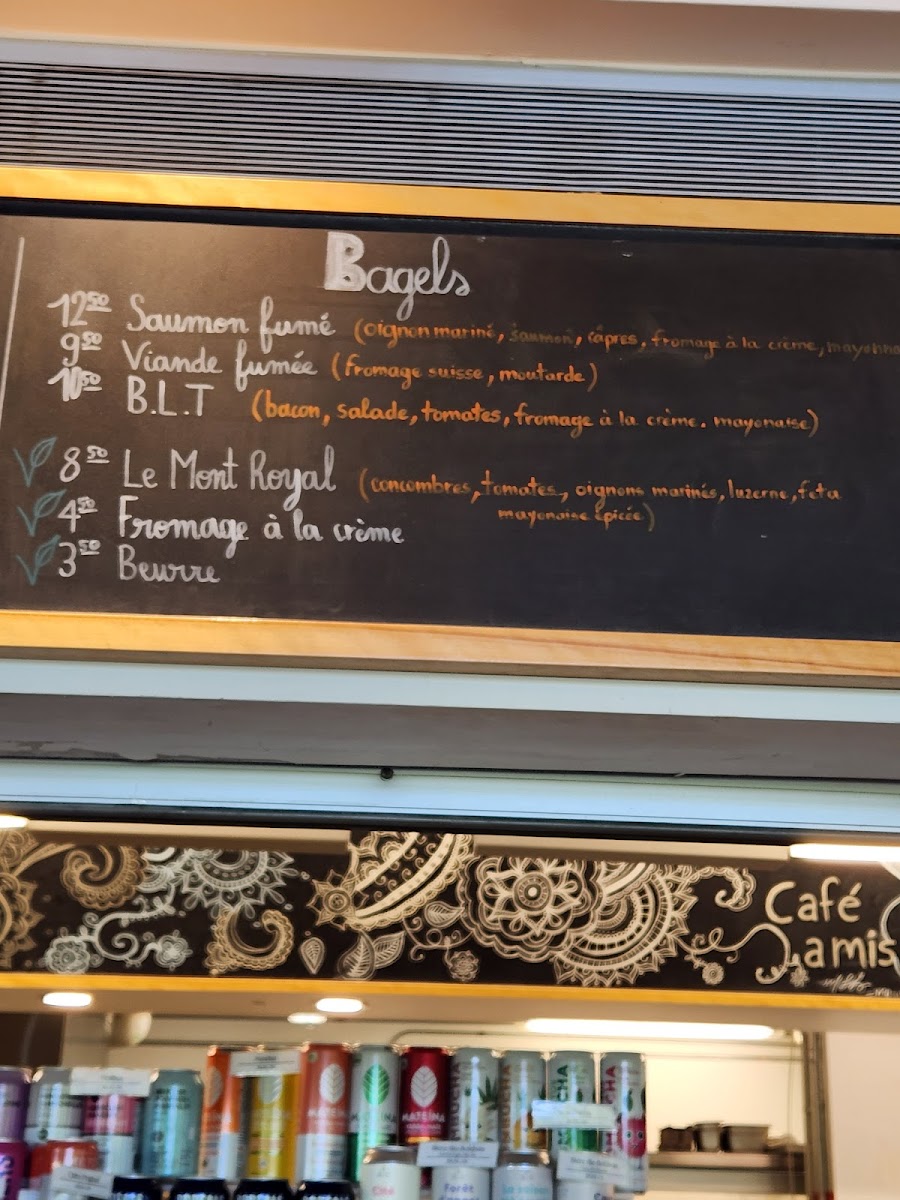 Bagels
12⁵⁰ Saumon fumé (oignon mariné, saumon, câpres, fromage à la crème, mayonna
9⁵⁰ Viande fumée (fromage suisse, moutarde)
10⁵⁰ B.L.T (bacon, salade, tomates, fromage à la crème. mayonaise)
8⁵⁰ Le Mont Royal (concombres, tomates, oignons marinés, luzerne, feta
mayonaise épicée)
4⁵⁰ Fromage à la crème
3⁵⁰ Beurre
Café
L'amis
MATEÍNA
MATEÍNA
MATEÍNA
Cité
Forêt